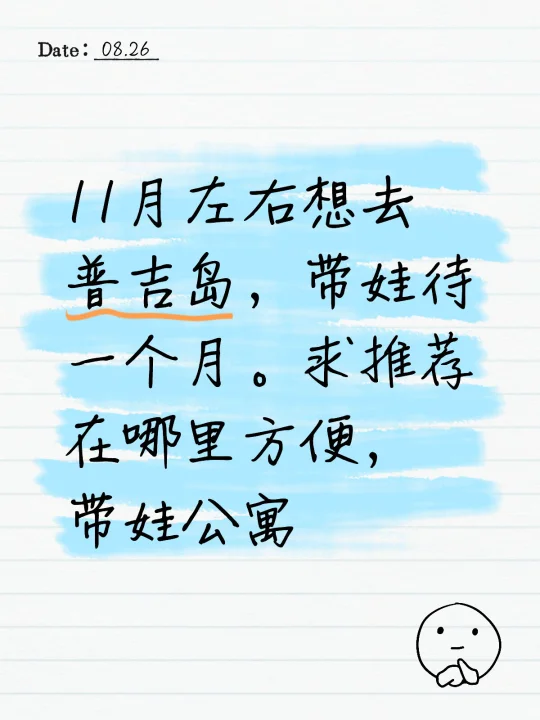 Date: 08.26
11月左右想去
普吉岛，带娃待
一个月。求推荐
在哪里方便，
带娃公寓